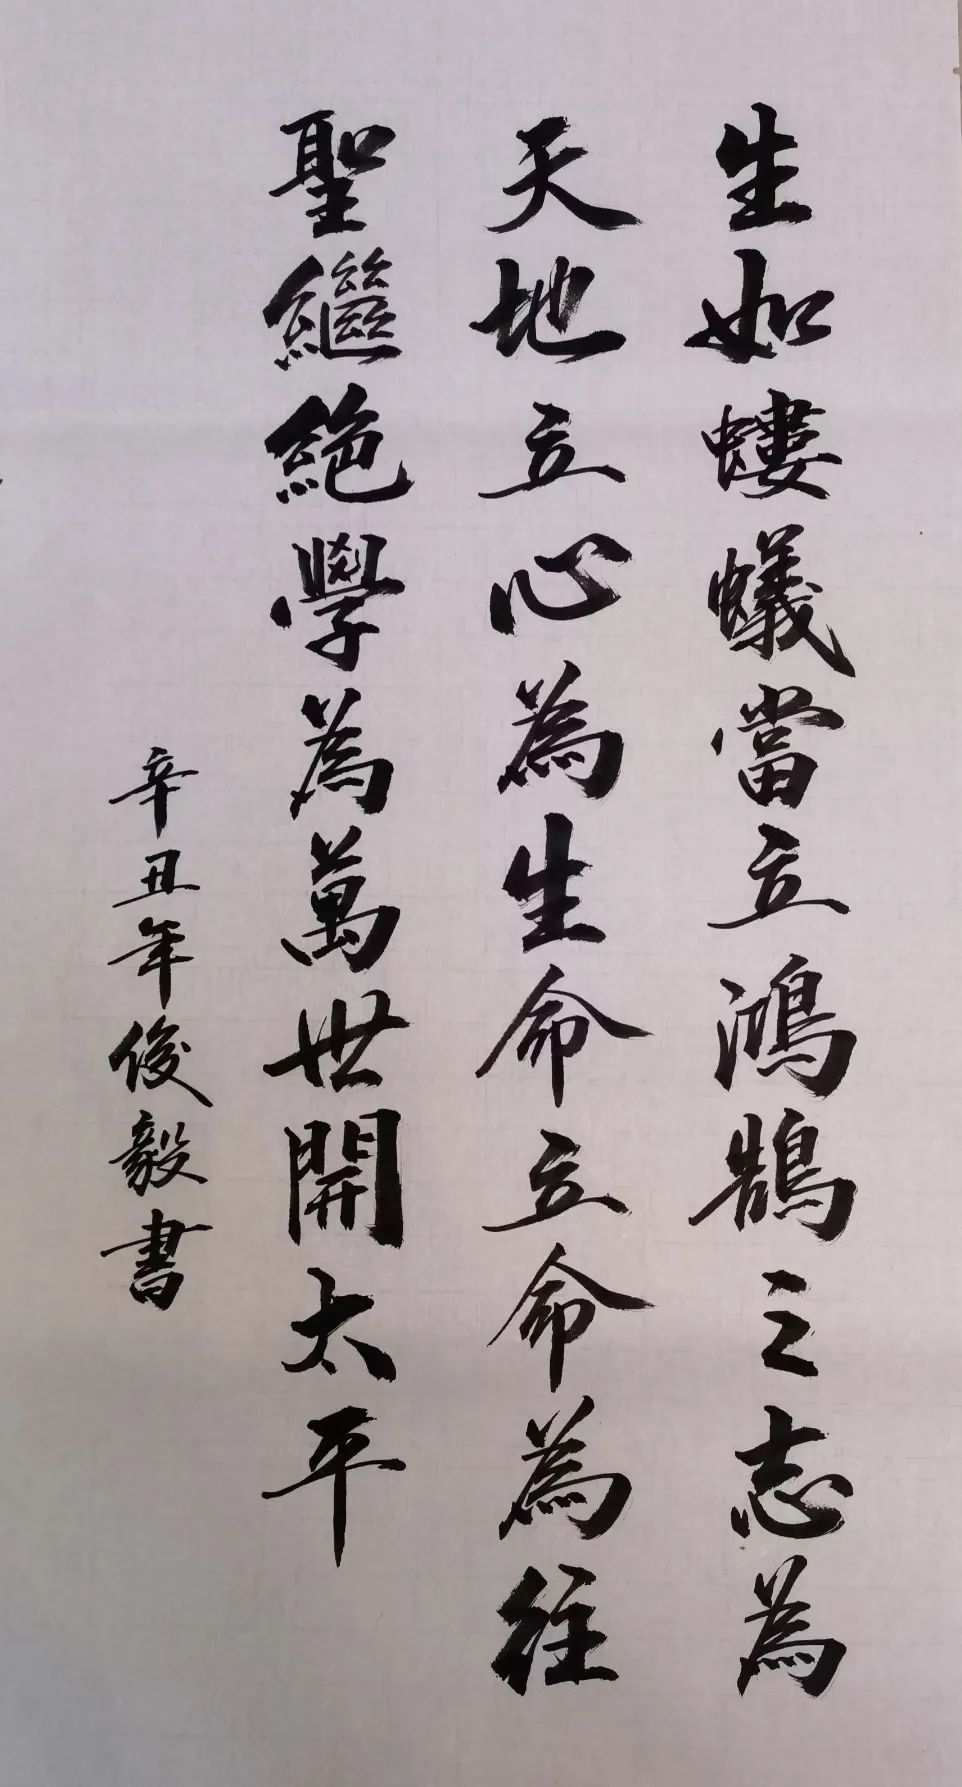 生如螻蟻當立鴻鵠之志為
天地立心為生命立命為往
聖繼絕學為萬世開太平
辛丑年俊毅書